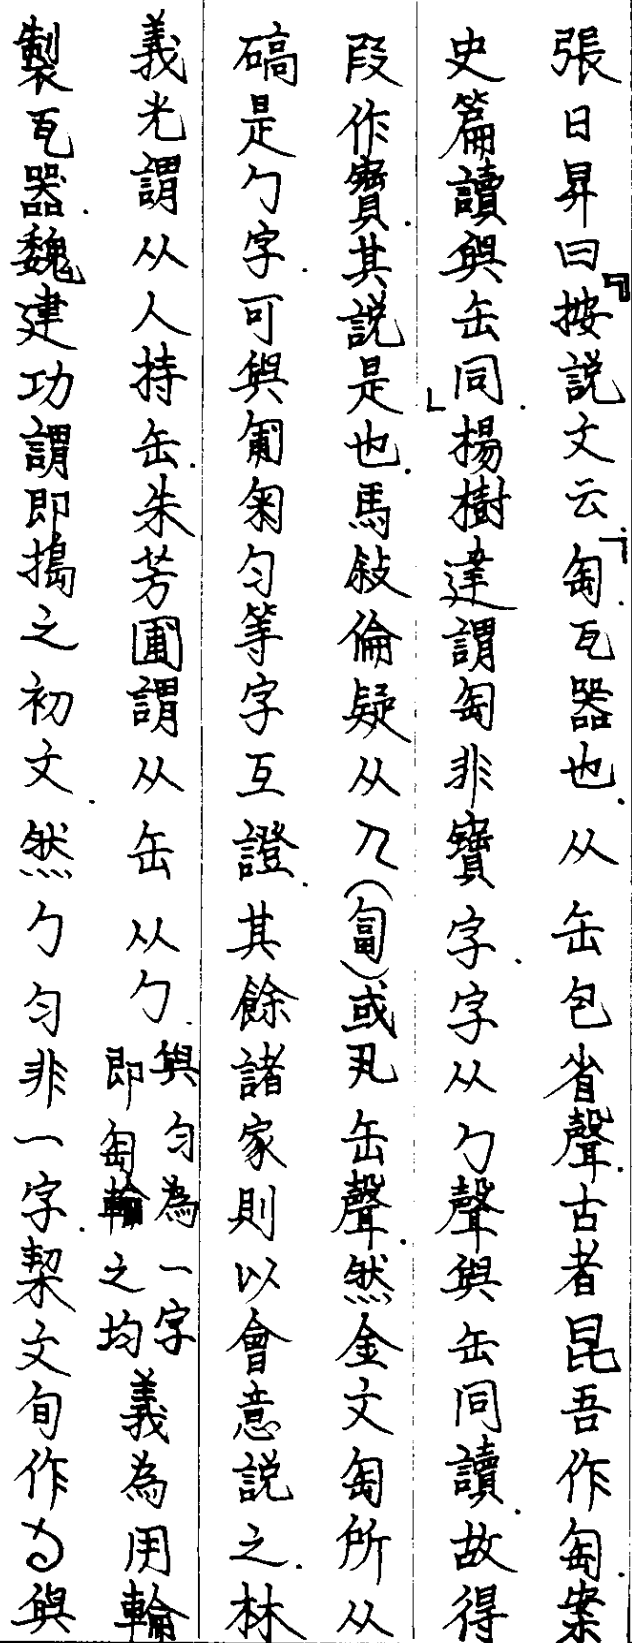 張日昇曰『按説文云「匋.瓦器也.从缶包省聲.古者昆吾作匋.案
史篇讀與缶同.」楊樹達謂匋非寶字.字从勹聲與缶同讀.故得
叚作寶.其説是也.馬敍倫疑从𠘧(匐)或丮缶聲.然金文匋所从
碻是勹字.可與匍匊匀等字互證.其餘諸家則以會意説之.林
義光謂从人持缶.朱芳圃謂从缶从勹.與匀為一字即匋輪之均義為用輪
製瓦器.魏建功謂即搗之初文.然勹匀非一字.栔文旬作 與